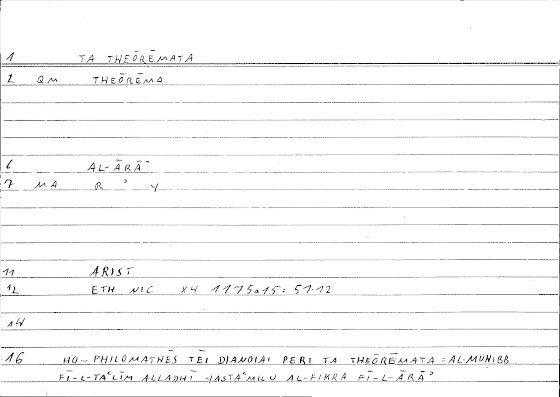 1 TA THEŌRĒMATA
2 QM THEŌRĒMA
6 AL-ĀRĀʾ
7 MA R ʾ Y
11 ARIST
12 ETH NIC X4 1175a15 = 551.12
14
16 HO-PHILOMATHĒS TĒI DIANOIAI PERI TA THEŌRĒMATA = AL-MUḤIBB
FĪ-L-TAʿLĪM ALLADHĪ YASTAʿMILU AL-FIKRA FĪ-L-ĀRĀʾ